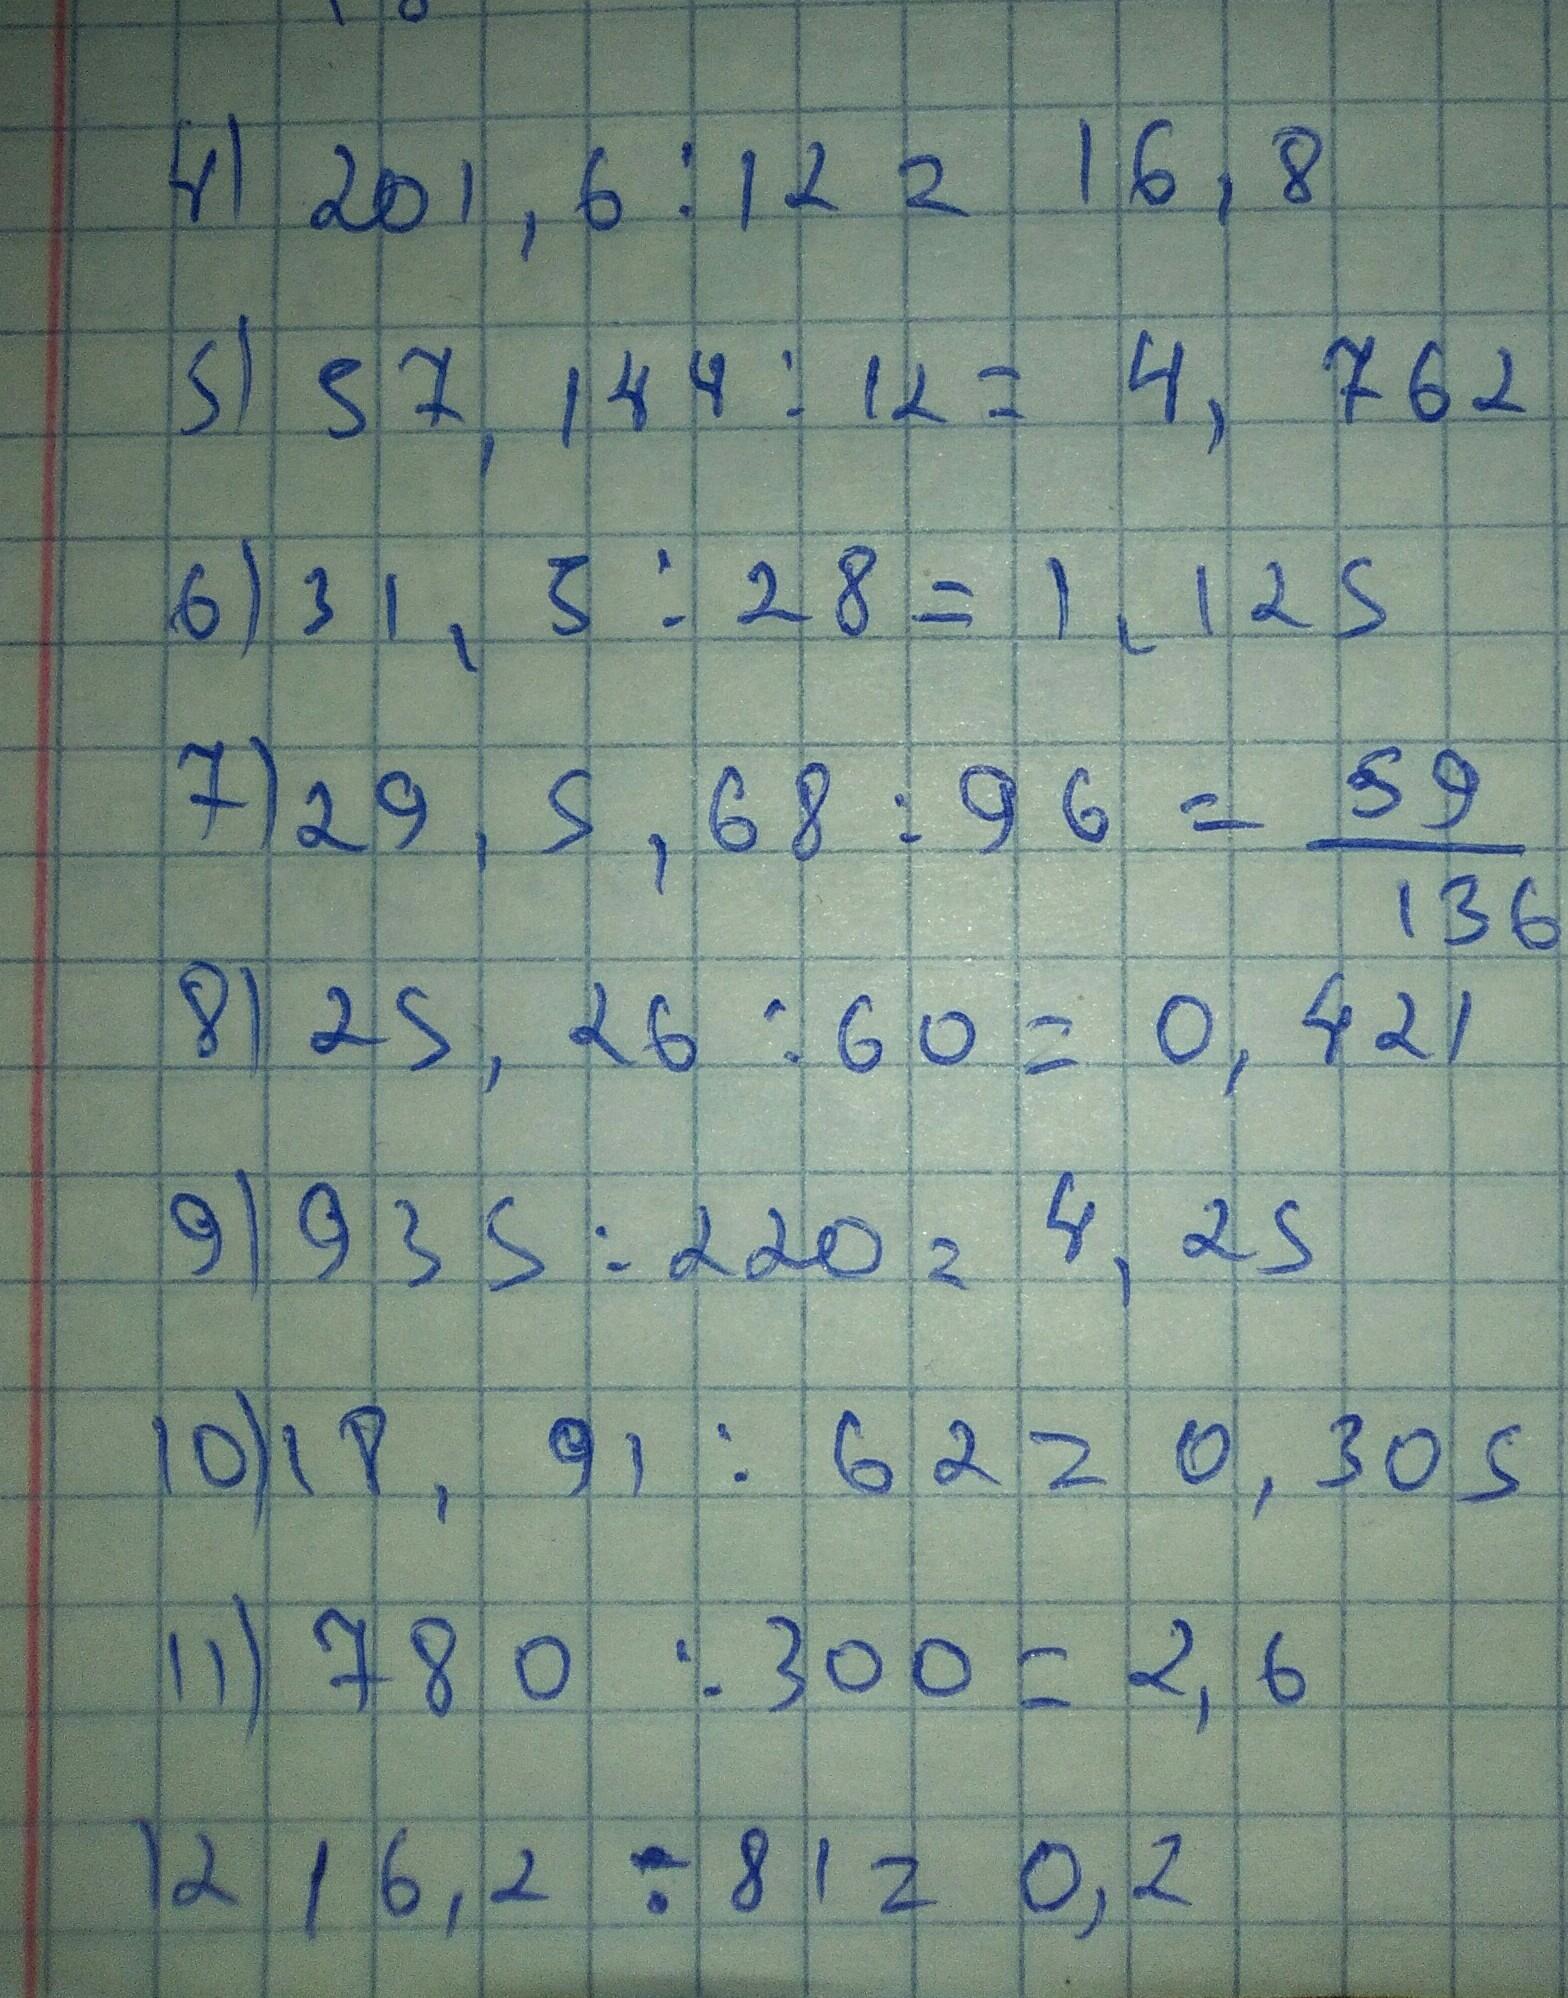 4) 201,6:12=16,8
5) 57,144:12=4,762
6) 31,5:28=1,125
7) 29,5,68:96=59/136
8) 25,26:60=0,421
9) 935:220=4,25
10) 18,91:62=0,305
11) 780:300=2,6
12 16,2÷81=0,2